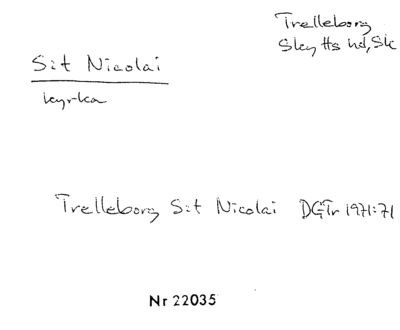 Trelleborg
Skytts hd, Sk
S:t Nicolai
kyrka
Trelleborg S:t Nicolai DGTr 1971:71
Nr 22035